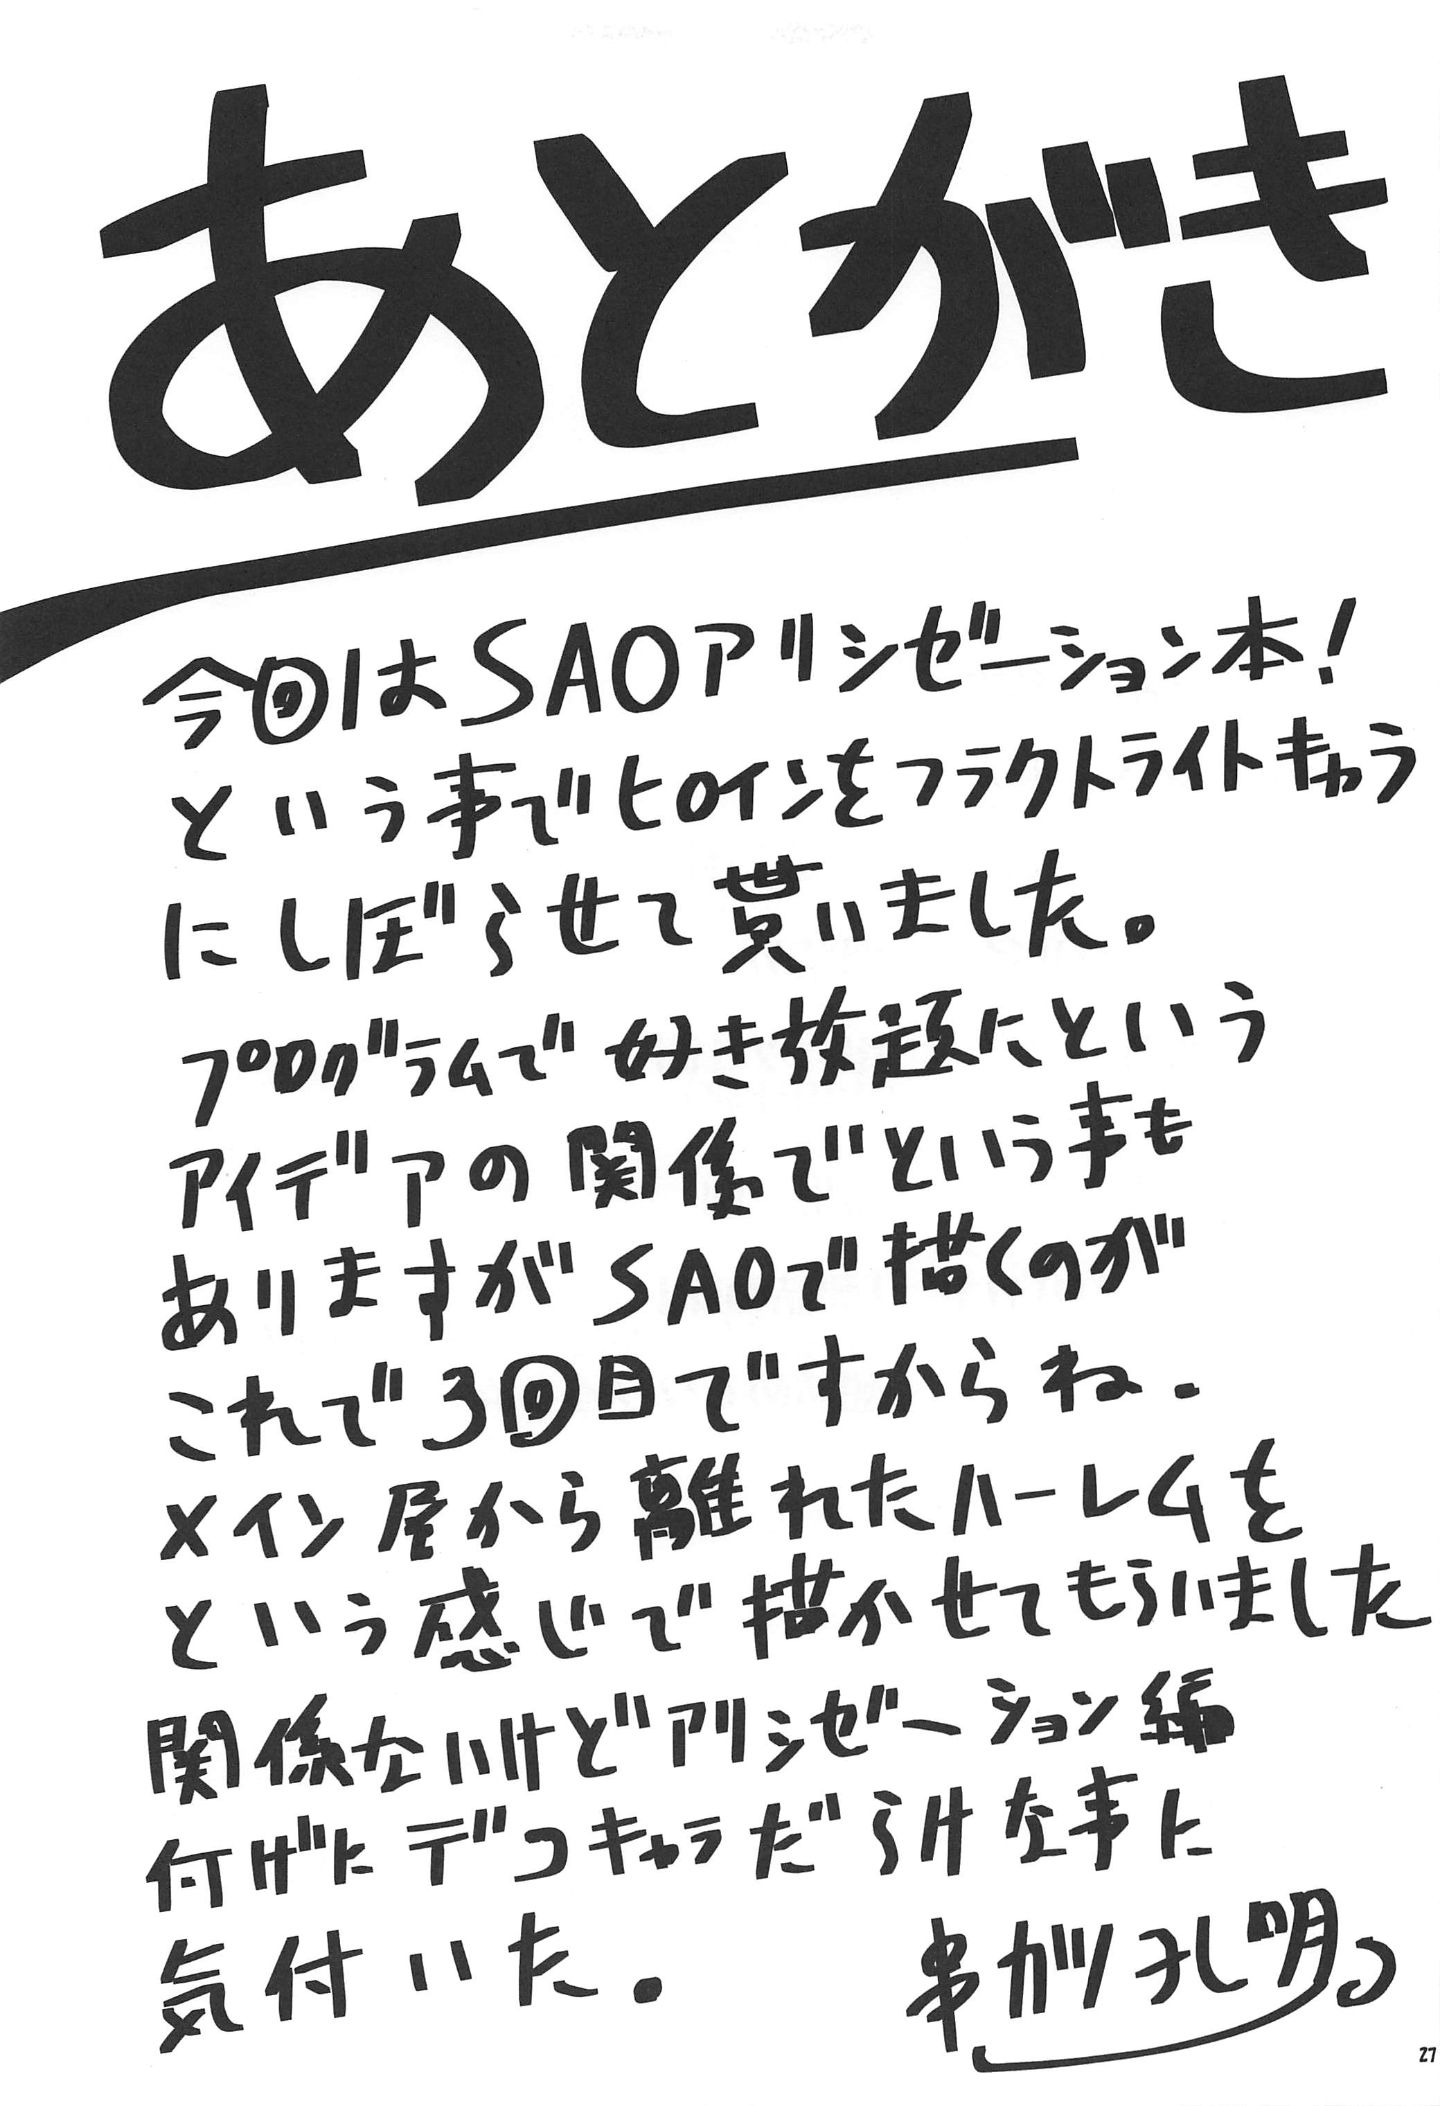 あとがき
今回はSAOアリシゼーション本!
という事でヒロインをフラクトライトキャラ
にしぼらせて貰いました。
プログラムで好き放題にという
アイデアの関係でという事も
ありますがSAOで描くのが
これで3回目ですからね.
メイン屋から離れたハーレムを
という感じで描かせてもらいました
関係ないけどアリシゼーション編
付げにデコキャラだらけな事に
気付いた.
串ガツ孔明。
27